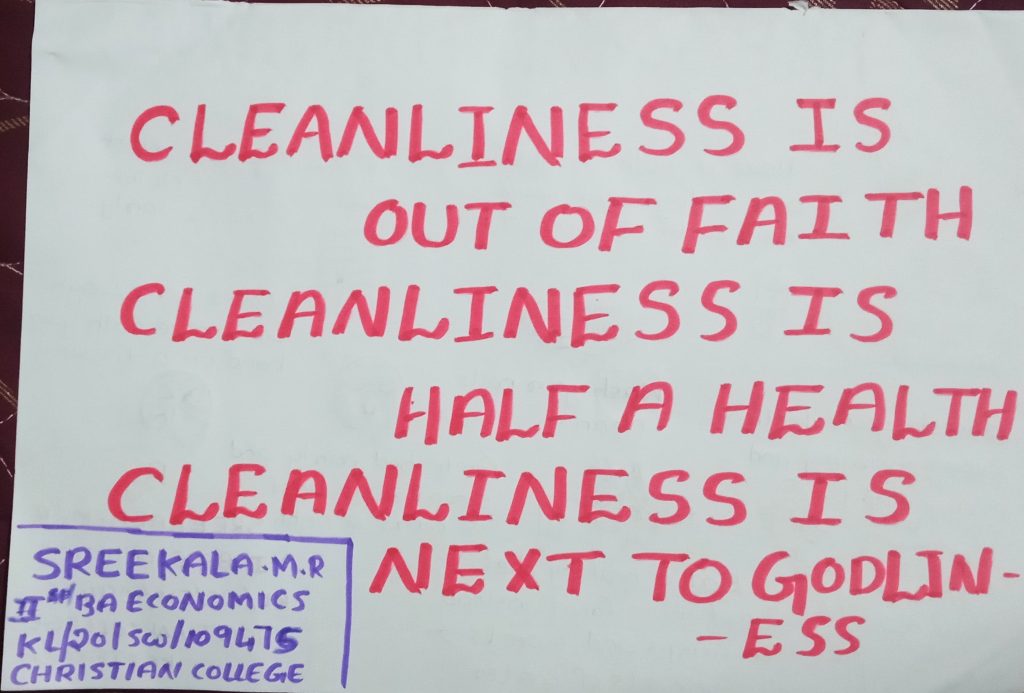 CLEANLINESS IS
OUT OF FAITH
CLEANLINESS IS
HALF A HEALTH
CLEANLINESS IS
NEXT TO GODLIN-
-ESS
SREEKALA.M.R
II BA ECONOMICS
KL/20/SW/109475
CHRISTIAN COLLEGE